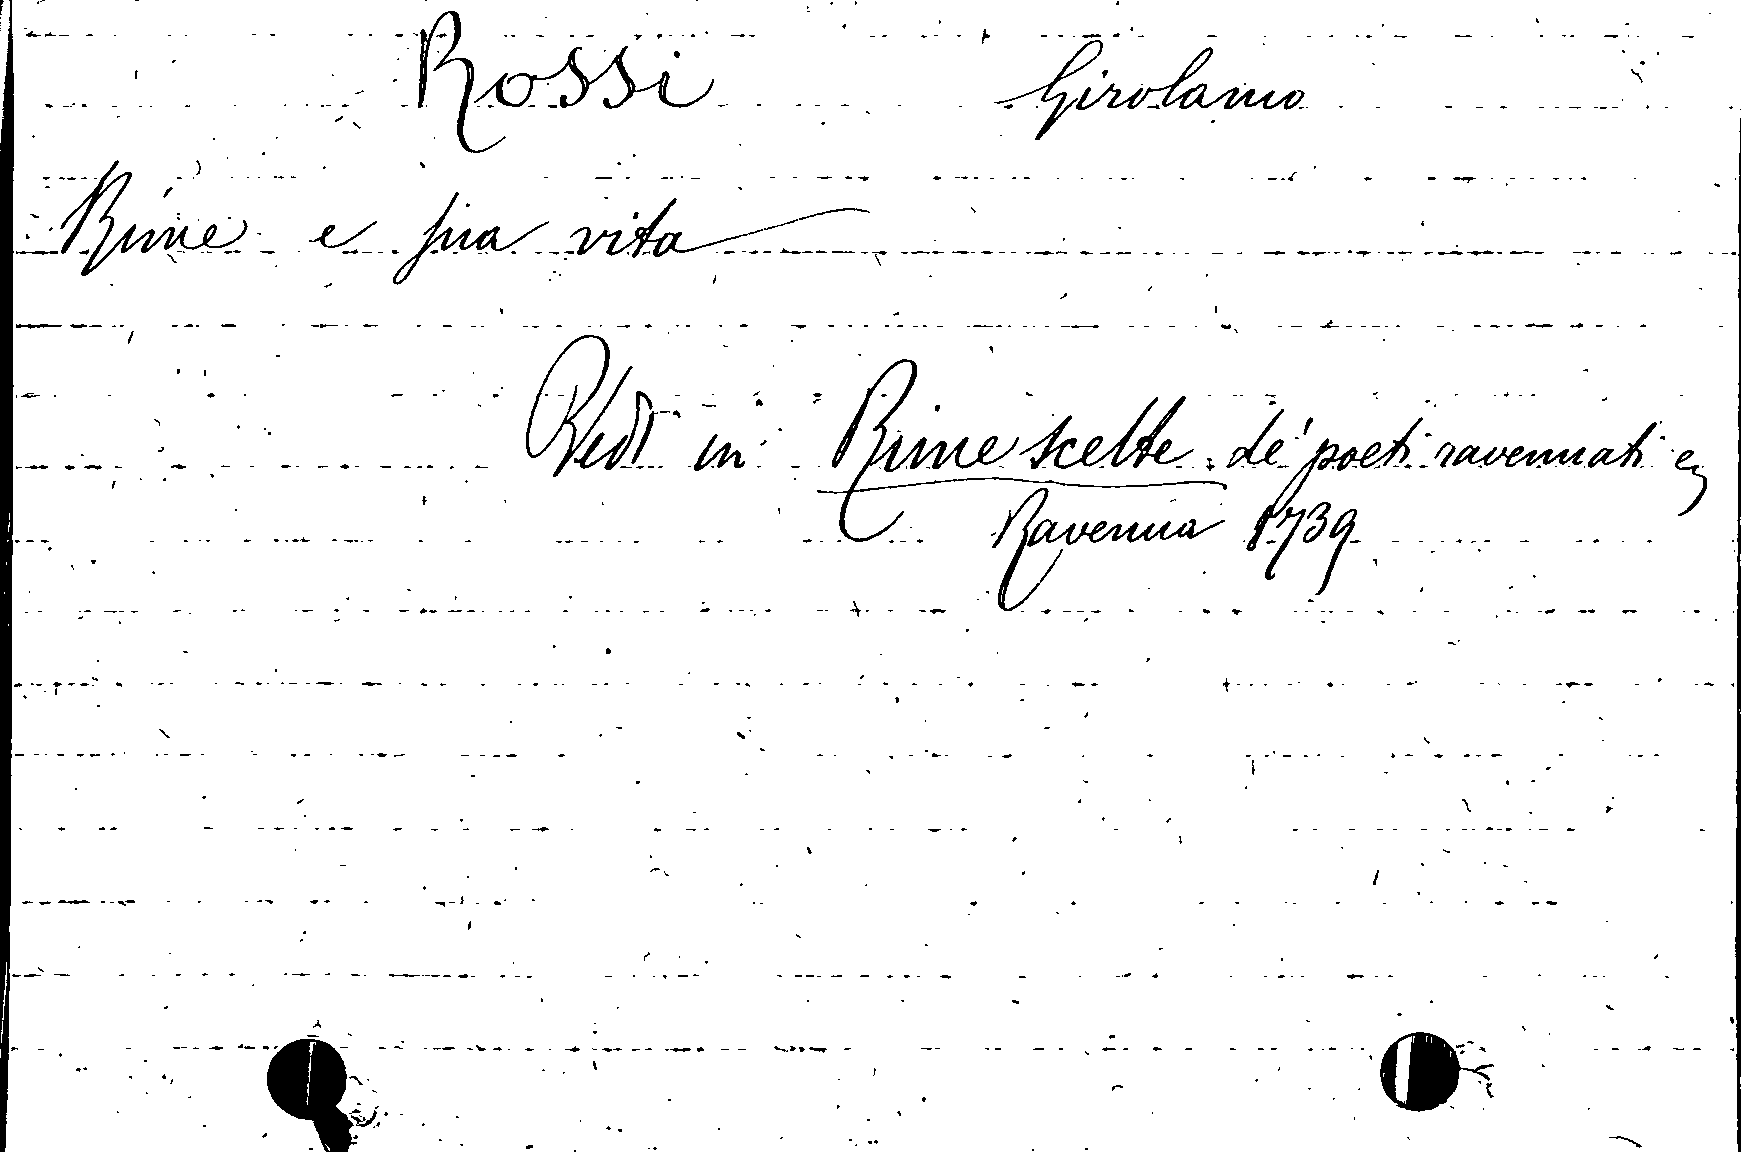 Rossi Girolamo
Rime e sua vita
Vedi in Rime scelte de' poeti ravennati
Ravenna 1739